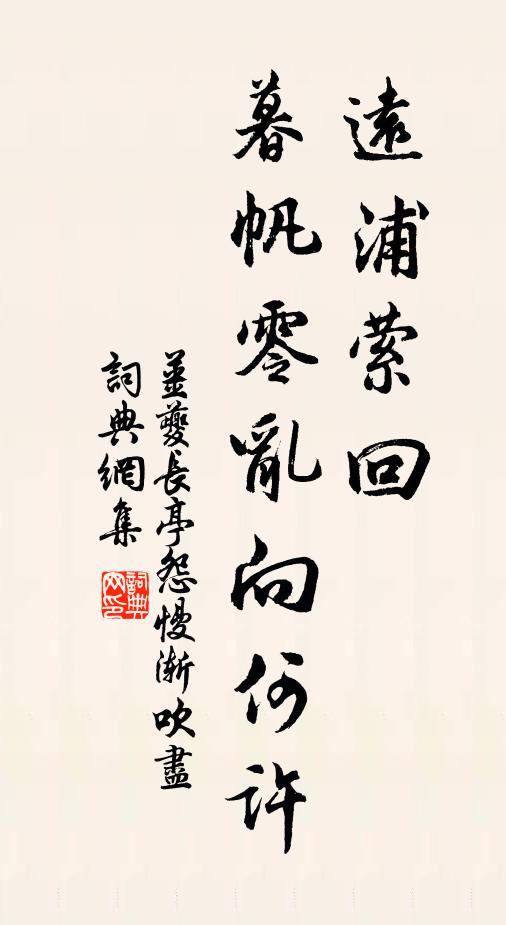 遠浦萦回
暮帆零亂向何許
姜夔長亭怨慢漸吹盡
詞典網集
詞典网印